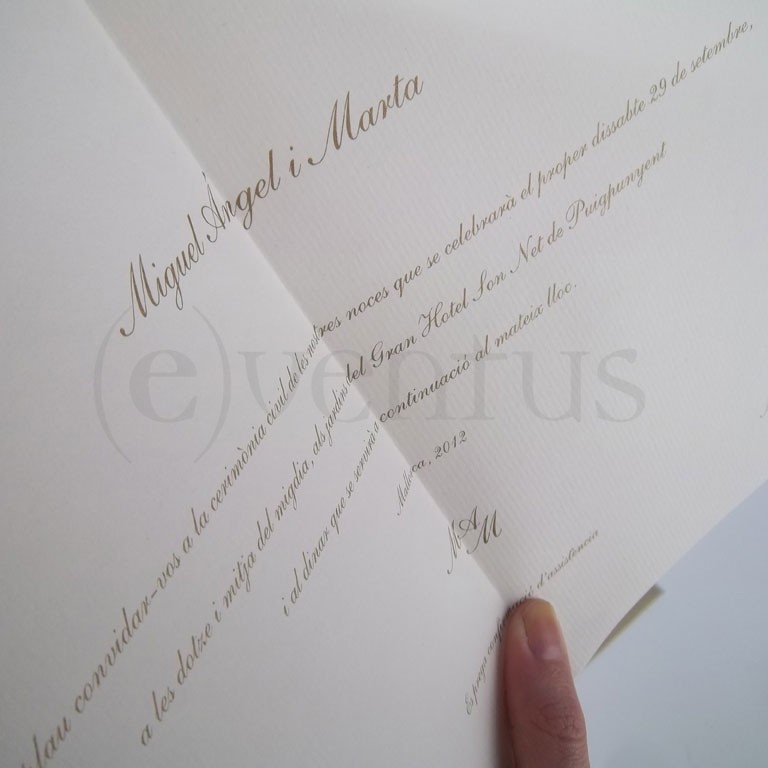 Miguel Ángel i Marta
convidar-vos a la cerimònia civil de les nostres noces que se celebrarà el proper dissabte 29 de setembre,
a les dotze i mitja del migdia, als jardins del Gran Hotel Son Net de Puigpunyent
i al dinar que se servirà a continuació al mateix lloc.
Mallorca, 2012
MAM
Es prega d'assistència
(e)ventus